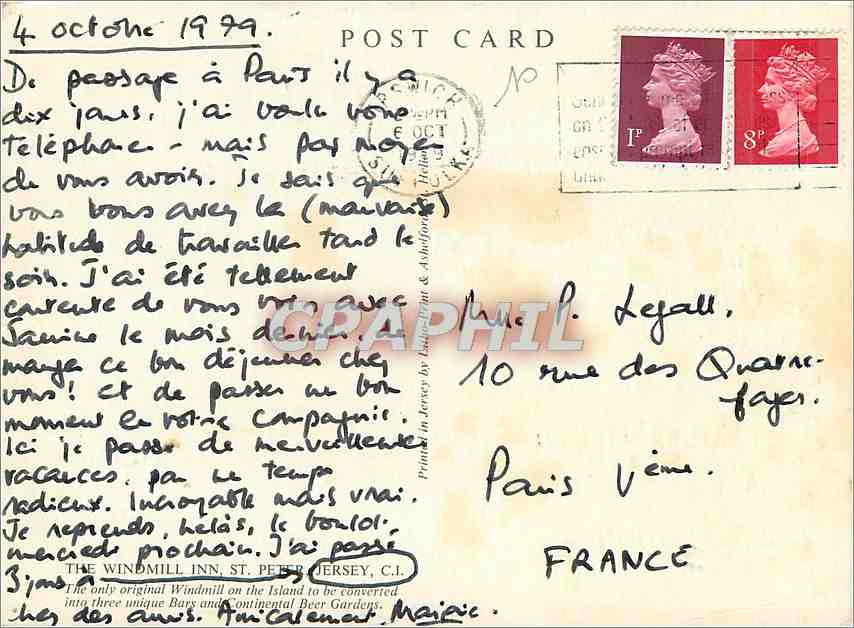 4 octobre 1979.
POST CARD
De passage à Paris il y a
dix jours, j'ai voulu vous
téléphoner - mais pas moyen
de vous avoir. Je sais que
vous avez la (mauvaise)
habitude de travailler tard le
soir. J'ai été tellement
contente de vous voir avec
le mois dernier, de
manger ce bon déjeuner chez
vous! et de passer un bon
moment en votre compagnie.
Ici je passe de merveilleuses
vacances, par un temps
radieux. Incroyable mais vrai.
Je reprends, hélas, le boulot
mercredi prochain. J'ai passé
3 jours à
THE WINDMILL INN, ST. PETER, JERSEY, C.I.
The only original Windmill on the Island to be converted
into three unique Bars and Continental Beer Gardens.
chez des amis. Amicalement,
Printed in Jersey by Litho-Print & Ashelford
IPSWICH
PM
6 OCT
1979
SUFFOLK
1P
8P
CPAPHIL
Mlle P. Legall.
10 rue des Quatre-
fages.
Paris Vème.
FRANCE